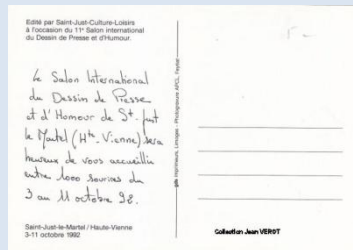 Edité par Saint-Just-Culture-Loisirs
à l'occasion du 11e Salon international
du Dessin de Presse et d'Humour.
Le Salon International
du Dessin de Presse
et d'Humour de St. Just
le Martel (Hte. Vienne) sera
heureux de vous accueillir
entre 1000 sourires du
3 au 11 octobre 92.
Saint-Just-le-Martel / Haute-Vienne
3-11 octobre 1992
imprimeurs, Limoges - Photogravure APCL, Feytiat
Collection Jean VEROT